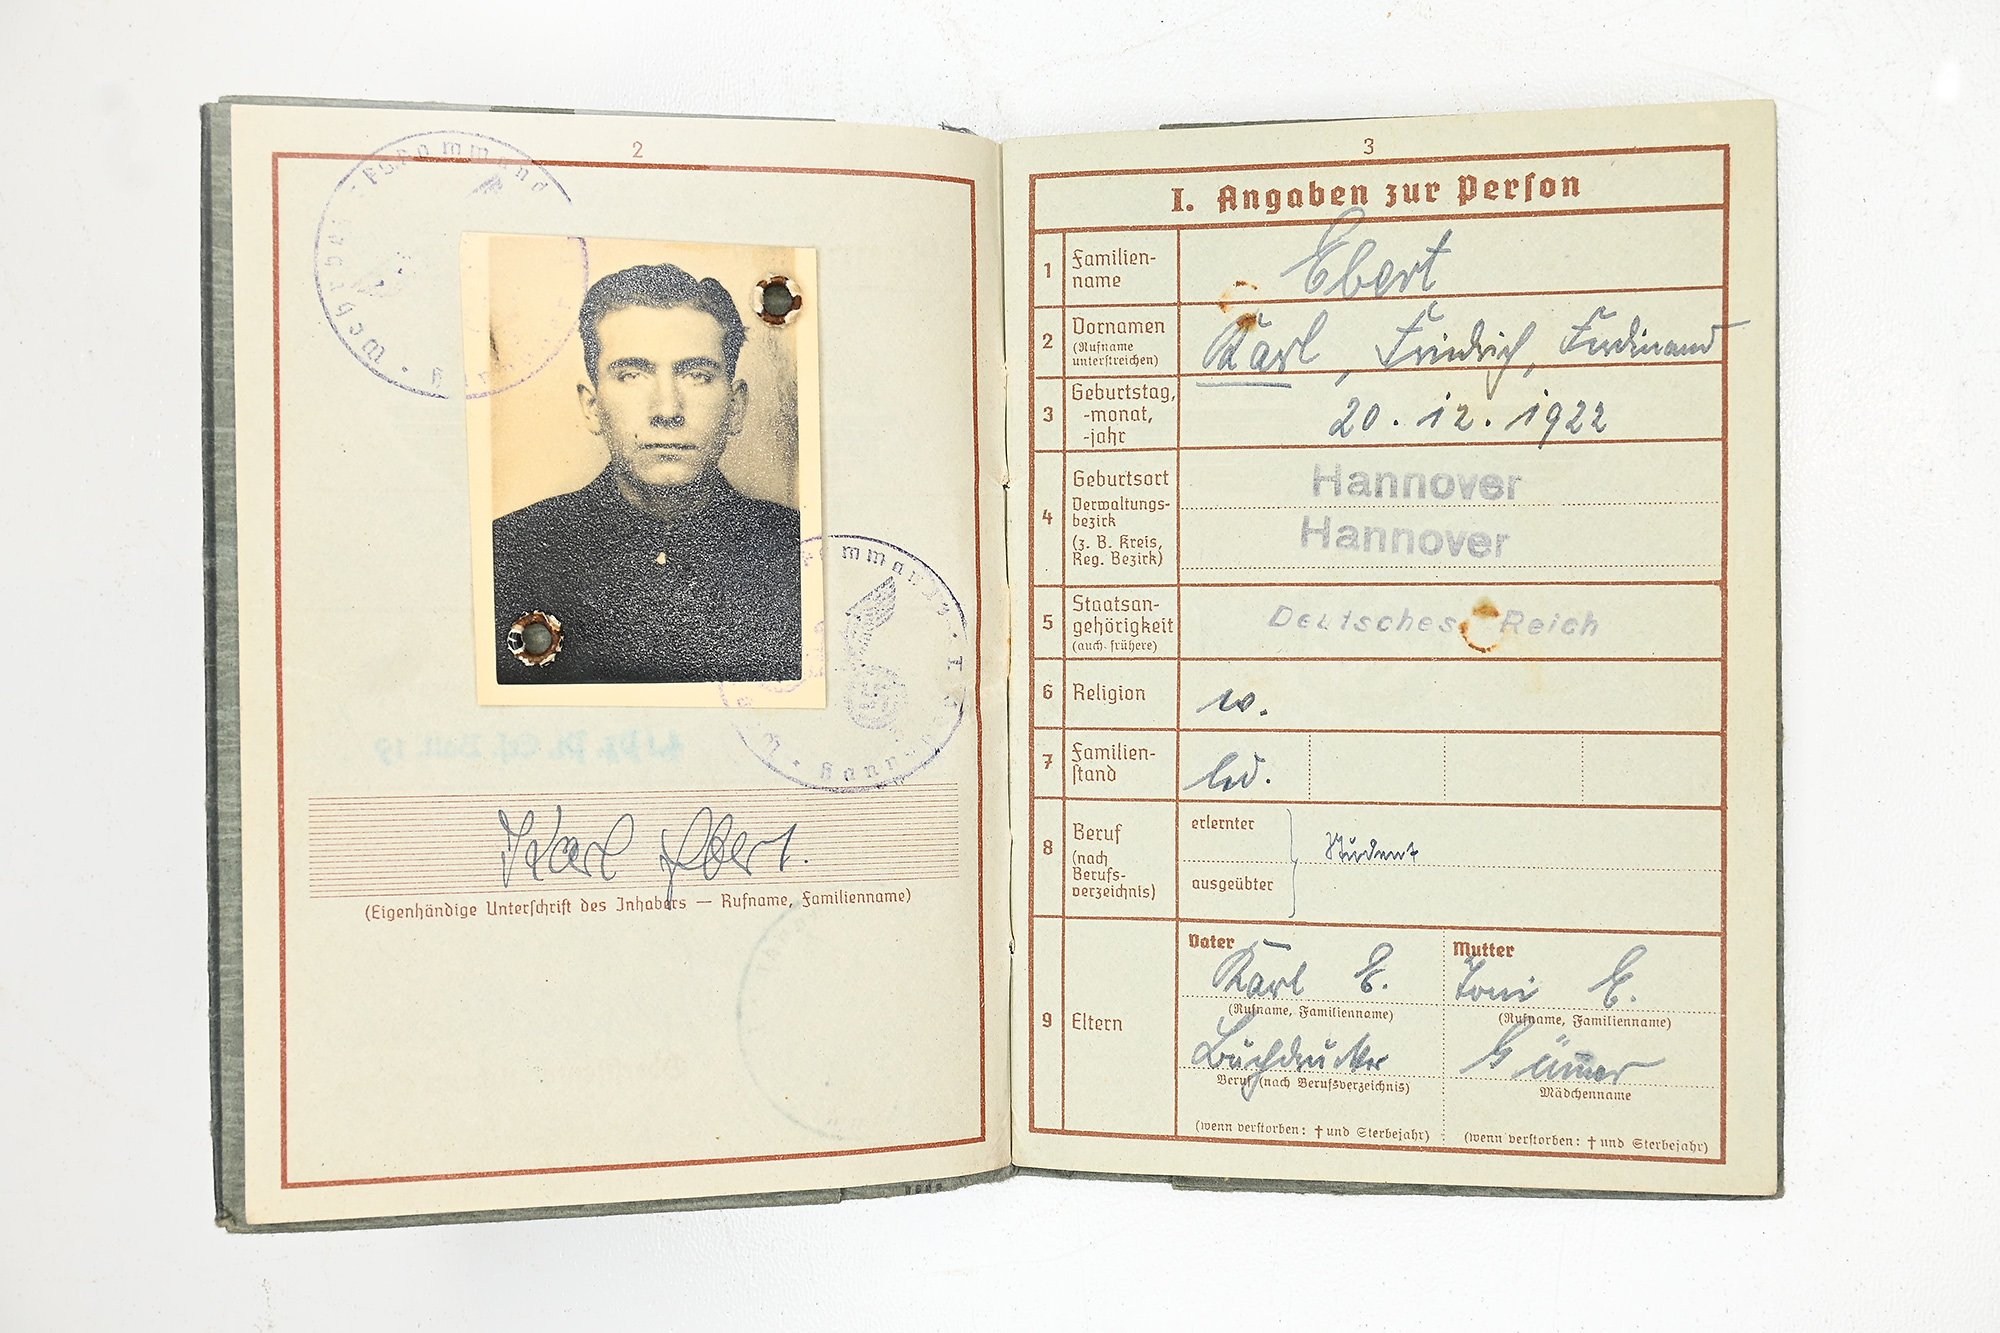 2
Wehrbezirkskommando
Hannover
Karl Ebert.
(Eigenhändige Unterschrift des Inhabers — Rufname, Familienname)
3
I. Angaben zur Person
1 Familien-
name
Ebert
2 Vornamen
(Rufname
unterstreichen)
Karl, Friedrich, Ferdinand
3 Geburtstag,
-monat,
-jahr
20. 12. 1922
4 Geburtsort
Verwaltungs-
bezirk
(z. B. Kreis,
Reg. Bezirk)
Hannover
Hannover
5 Staatsan-
gehörigkeit
(auch frühere)
Deutsches Reich
6 Religion
7 Familien-
stand
led.
8 Beruf
(nach
Berufs-
verzeichnis)
erlernter
ausgeübter
Student
9 Eltern
Vater
Karl E.
(Rufname, Familienname)
Buchdrucker
Beruf (nach Berufsverzeichnis)
(wenn verstorben: † und Sterbejahr)
Mutter
Toni E.
(Rufname, Familienname)
Mädchenname
(wenn verstorben: † und Sterbejahr)